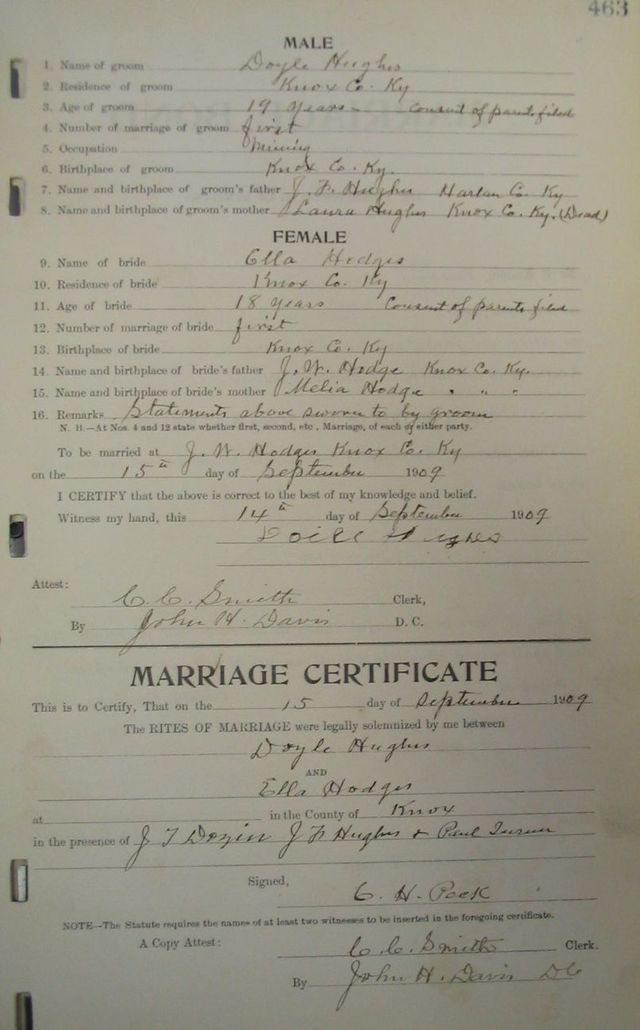 463
MALE
1. Name of groom Doyle Hughes
2. Residence of groom Knox Co. Ky
3. Age of groom 19 years – Consent of parents filed
4. Number of marriage of groom first
5. Occupation Mining
6. Birthplace of groom Knox Co. Ky.
7. Name and birthplace of groom's father J. F. Hughes Harlan Co. Ky
8. Name and birthplace of groom's mother Laura Hughes Knox Co. Ky. (Dead)
FEMALE
9. Name of bride Ella Hodges
10. Residence of bride Knox Co. Ky
11. Age of bride 18 years Consent of parents filed
12. Number of marriage of bride first
13. Birthplace of bride Knox Co. Ky
14. Name and birthplace of bride's father J. W. Hodge Knox Co. Ky.
15. Name and birthplace of bride's mother Melia Hodge " " "
16. Remarks Statements above sworn to by groom
N. B.—At Nos. 4 and 12 state whether first, second, etc., Marriage, of each of either party.
To be married at J. W. Hodges Knox Co. Ky
on the 15th day of September 1909
I CERTIFY that the above is correct to the best of my knowledge and belief.
Witness my hand, this 14th day of September 1909
Doile Hughes
Attest:
C. C. Smith Clerk,
By John H. Davis D. C.
MARRIAGE CERTIFICATE
This is to Certify, That on the 15 day of September 1909
The RITES OF MARRIAGE were legally solemnized by me between
Doyle Hughes
AND
Ella Hodges
at in the County of Knox
in the presence of J T J F Hughes & Paul Turner
Signed,
C. H. Peek
NOTE—The Statute requires the names of at least two witnesses to be inserted in the foregoing certificate.
A Copy Attest: C. C. Smith Clerk.
By John H. Davis DC